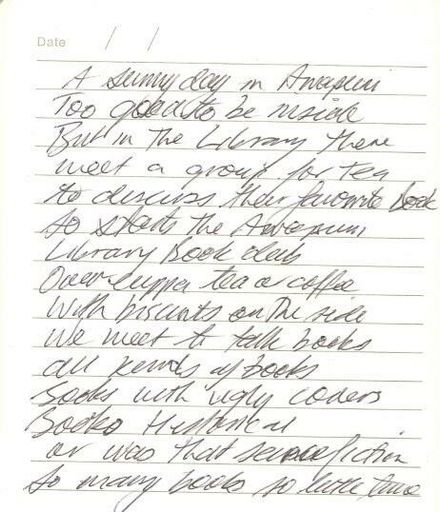 Date / /
A sunny day in Awapuni
Too good to be inside
But in The Library there
meet a group for tea
to discuss their favourite book
So starts the Awapuni
Library Book club
Over cuppa tea or coffee
With biscuits on The side
We meet to talk books
all kinds of books
Books with ugly covers
Books Historical
or was that science fiction
So many books so little time